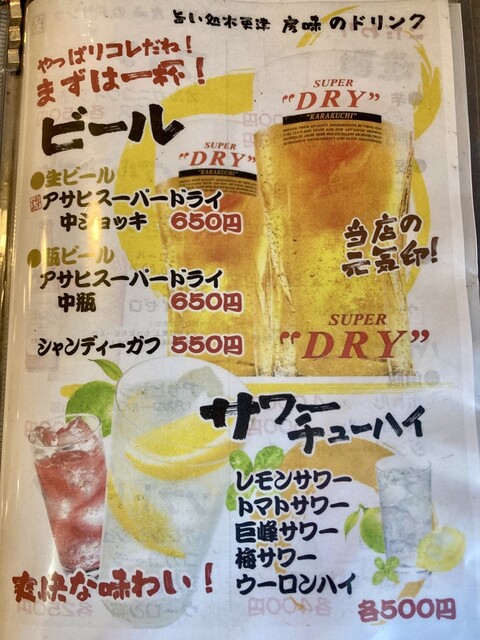 旨い処木更津 房味のドリンク
やっぱりコレだね！
まずは一杯！
ビール
●生ビール
アサヒスーパードライ
中ジョッキ 650円
●瓶ビール
アサヒスーパードライ
中瓶 650円
シャンディーガフ 550円
SUPER
"DRY"
"KARAKUCHI"
SUPER
"DRY"
"KARAKUCHI"
当店の
元気印!
SUPER
"DRY"
サワー
チューハイ
レモンサワー
トマトサワー
巨峰サワー
梅サワー
ウーロンハイ
各500円
爽快な味わい！